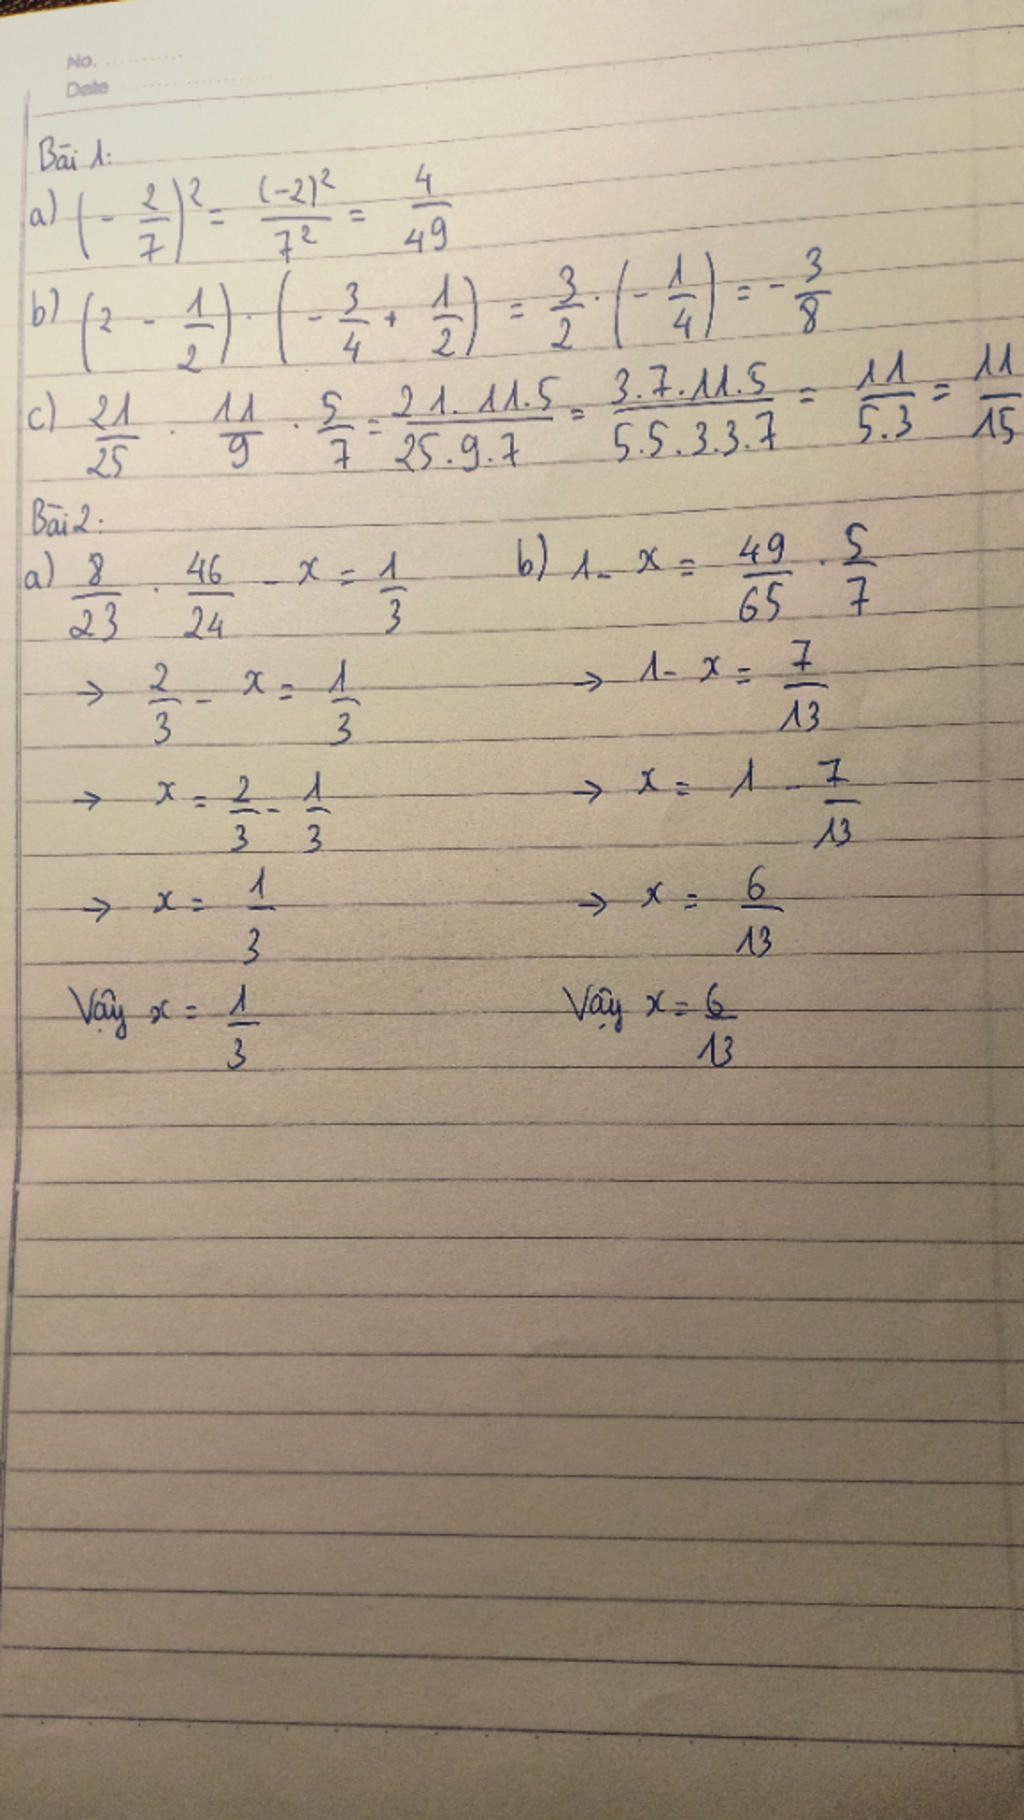 No. ............
Date ....................
Bài 1:
a) (- 2/7)² = (-2)²/7² = 4/49
b) (2 - 1/2) . (- 3/4 + 1/2) = 3/2 . (- 1/4) = - 3/8
c) 21/25 . 11/9 . 5/7 = 21.11.5/25.9.7 = 3.7.11.5/5.5.3.3.7 = 11/5.3 = 11/15
Bài 2:
a) 8/23 . 46/24 - x = 1/3
→ 2/3 - x = 1/3
→ x = 2/3 - 1/3
→ x = 1/3
Vậy x = 1/3
b) 1 - x = 49/65 . 5/7
→ 1 - x = 7/13
→ x = 1 - 7/13
→ x = 6/13
Vậy x = 6/13